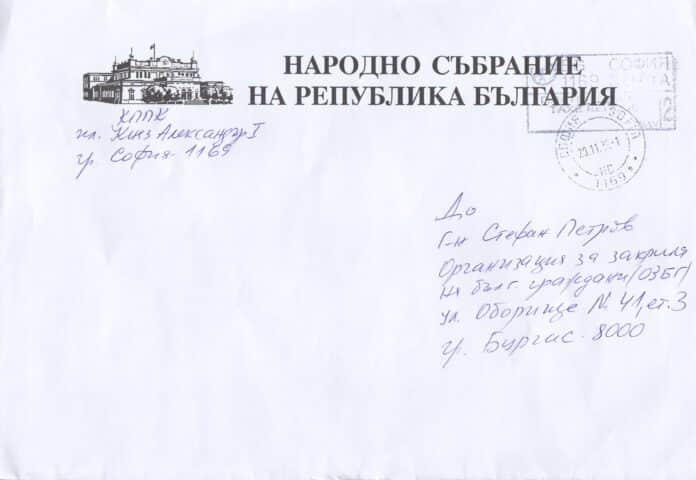 НАРОДНО СЪБРАНИЕ
НА РЕПУБЛИКА БЪЛГАРИЯ
КППК
пл. Княз Александър I
гр. София - 1169
СОФИЯ
1169
20.11
НС
1169
До
Г-н Стефан Петров
Организация за закрила
на бълг. граждани (ОЗБГ)
ул. Оборище № 41, ет. 3
гр. Бургас - 8000